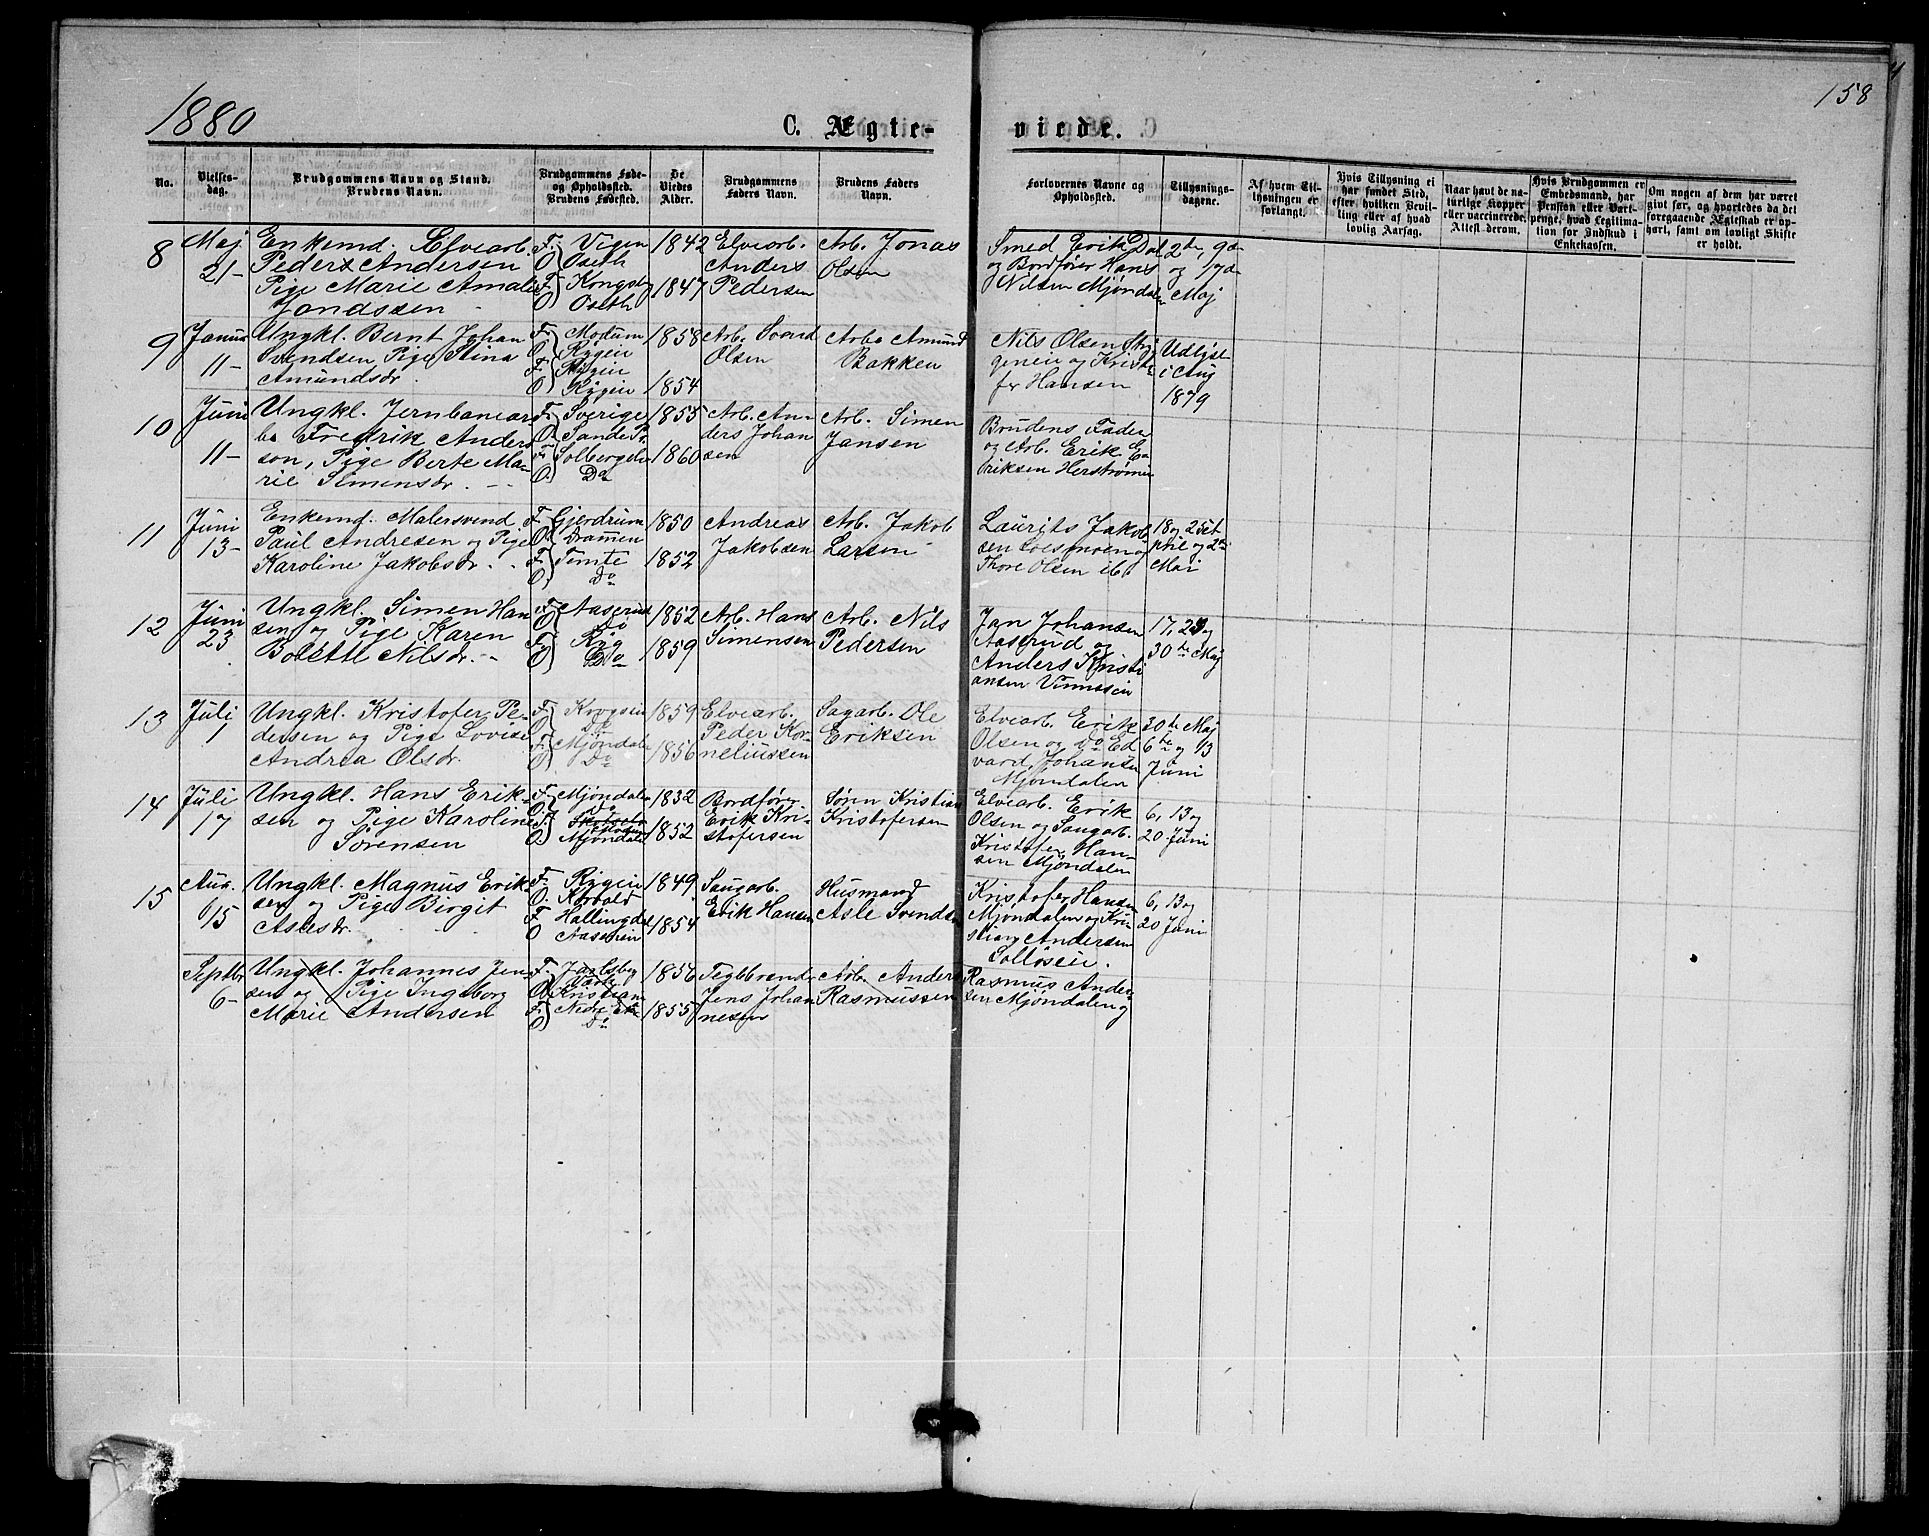 158
1880
C. Ægte-
viede.
No.
Vielses-
dag.
Brudgommens Navn og Stand.
Brudens Navn.
Brudgommens Føde-
og Opholdssted.
Brudens Fødested.
De
Viedes
Alder.
Brudgommens
Faders Navn.
Brudens Faders
Navn.
Forlovernes Navne og
Opholdssted.
Tillysnings-
dagene.
Af hvem Til-
lysningen er
forlangt.
Hvis Tillysning ei
har fundet Sted,
efter hvilken Bevil-
ling eller af hvad
lovlig Aarsag.
Naar havt de na-
turlige Kopper
eller vaccinerede.
Attest derom.
Hvis Brudgommen er
Embedsmand, har
Pension eller Vart-
penge, hvad Legitima-
tion for Indskud i
Enkekassen.
Om nogen af dem har været
gift før, og hvorledes da det
foregaaende Ægteskab er op-
hørt, samt om lovligt Skifte
er holdt.
8
Maj
21-
Enkemd. Elvearb.
Peder Andersen
Pige Marie Amalie
Jonassen
F. Vigen
O Oseth
F. Kongsbg
O Oseth
1842
1847
Elvearb.
Anders
Pedersen
Arb. Jonas
Olsen
Smed Erik Dal
og Bordfører Hans
Nilsen Mjøndalen
2de, 9de
og 17de
Maj
9
Januar
11-
Ungkl. Bernt Johan
Svendsen, Pige Stina
Amundsdr.
F. Modum
O. Rygein
F. Rygein
O Rygein
1858
1854
Arb. Svend
Olsen
Arb. Amund
Bakken
Nils Olsen
geneie og Kristo-
fer Hansen
Udlyst
i Aug
1879
10
Juni
11-
Ungkl. Jernbanear-
b. Fredrik Anders-
son, Pige Berte Ma-
rie Simensdr. --
F. Sverige
O. Sande Pr
F. Solbergelv
O. Do
1855
1860
Arb. An-
ders Johan
sen
Arb. Simen
Jansen
Brudens Fader
og Arb. Erik E-
riksen Herstrømm
11
Juni
13-
Enkemd. Malersvend
Paul Andresen og Pige
Karoline Jakobsdr. .
F. Gjerdrum
O. Dramen
F. Temte
O. Do
1850
1852
Andreas
Jakobsen
Arb. Jakob
Larsen
Laurits Jakob-
sen Loesmoen og
Thore Olsen ib.
18 og 25 A
pril og 2de
Mai
12
Juni
23
Ungkl. Simen Han
sen og Pige Karen
Bolette Nilsdr. --
F. Aaserud
O Do
F. Ryg
O Do
1852
1859
Arb. Hans
Simensen
Arb. Nils
Pedersen
Jan Johansen
Aaserud og
Anders Kristi
ansen Vinnesein
17, 23 og
30te Maj
13
Juli
1
Ungkl. Kristofer Pe-
dersen og Pige Lovise
Andrea Olsdr.
F. Krogsein
O Do
F. Mjøndale
O Do
1859
1856
Elvearb.
Peder Kor-
neliussen
Sagarb. Ole
Eriksen
Elvearb. Erik
Olsen og do Ed
vard Johansen
Mjøndalen
30te Maj
6te og 13
Juni
14
Juli
17
Ungkl. Hans Erik-
sen og Pige Karoline
Sørensen
F. Mjøndale
O. Do
F.
O Mjøndale
1832
1852
Bordfører
Erik Kri-
stofersen
Sørin Kristian
Kristofersen
Elvearb. Erik
Olsen og Saugarb.
Kristofer Han-
sen Mjøndalen
6, 13 og
20 Juni
15
Aug.
15
Ungkl. Magnus Erik-
sen og Pige Birgit
Aslesdr.
F. Rygein
O. Korvald
F Hallingdal
O Aaserein
1849
1854
Saugarb.
Erik Hansen
Husmand
Asle Svendsen
Kristofer Hansen
Mjøndalen og Kri-
stian Andersen
Solløsein.
6, 13 og
20 Juni
Septbr
6-
Ungkl. Johannes Jen-
sen og Pige Ingeborg
Marie Andersen
F. Jarlsberg
O Kristiania
F. Nedre Eker
O Do
1856
1855
Teglbrænder
Jens Johan
nesen
Arb. Anders
Rasmussen
Rasmus Ander-
sen Mjøndalen og